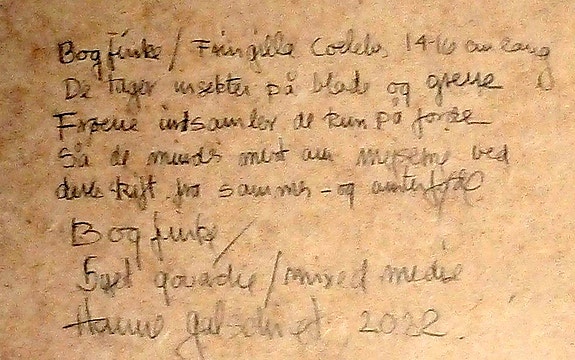 Bogfinke / Fringilla Coelebs, 14-16 cm lang
De tager insekter på blade og grene
Frøene indsamler de kun på jorde
Så de minds mest om mejserne ved
deres skift fra sommer- og vinterføde
Bogfinke /
gouache / mixed medie
Hanne 2022.